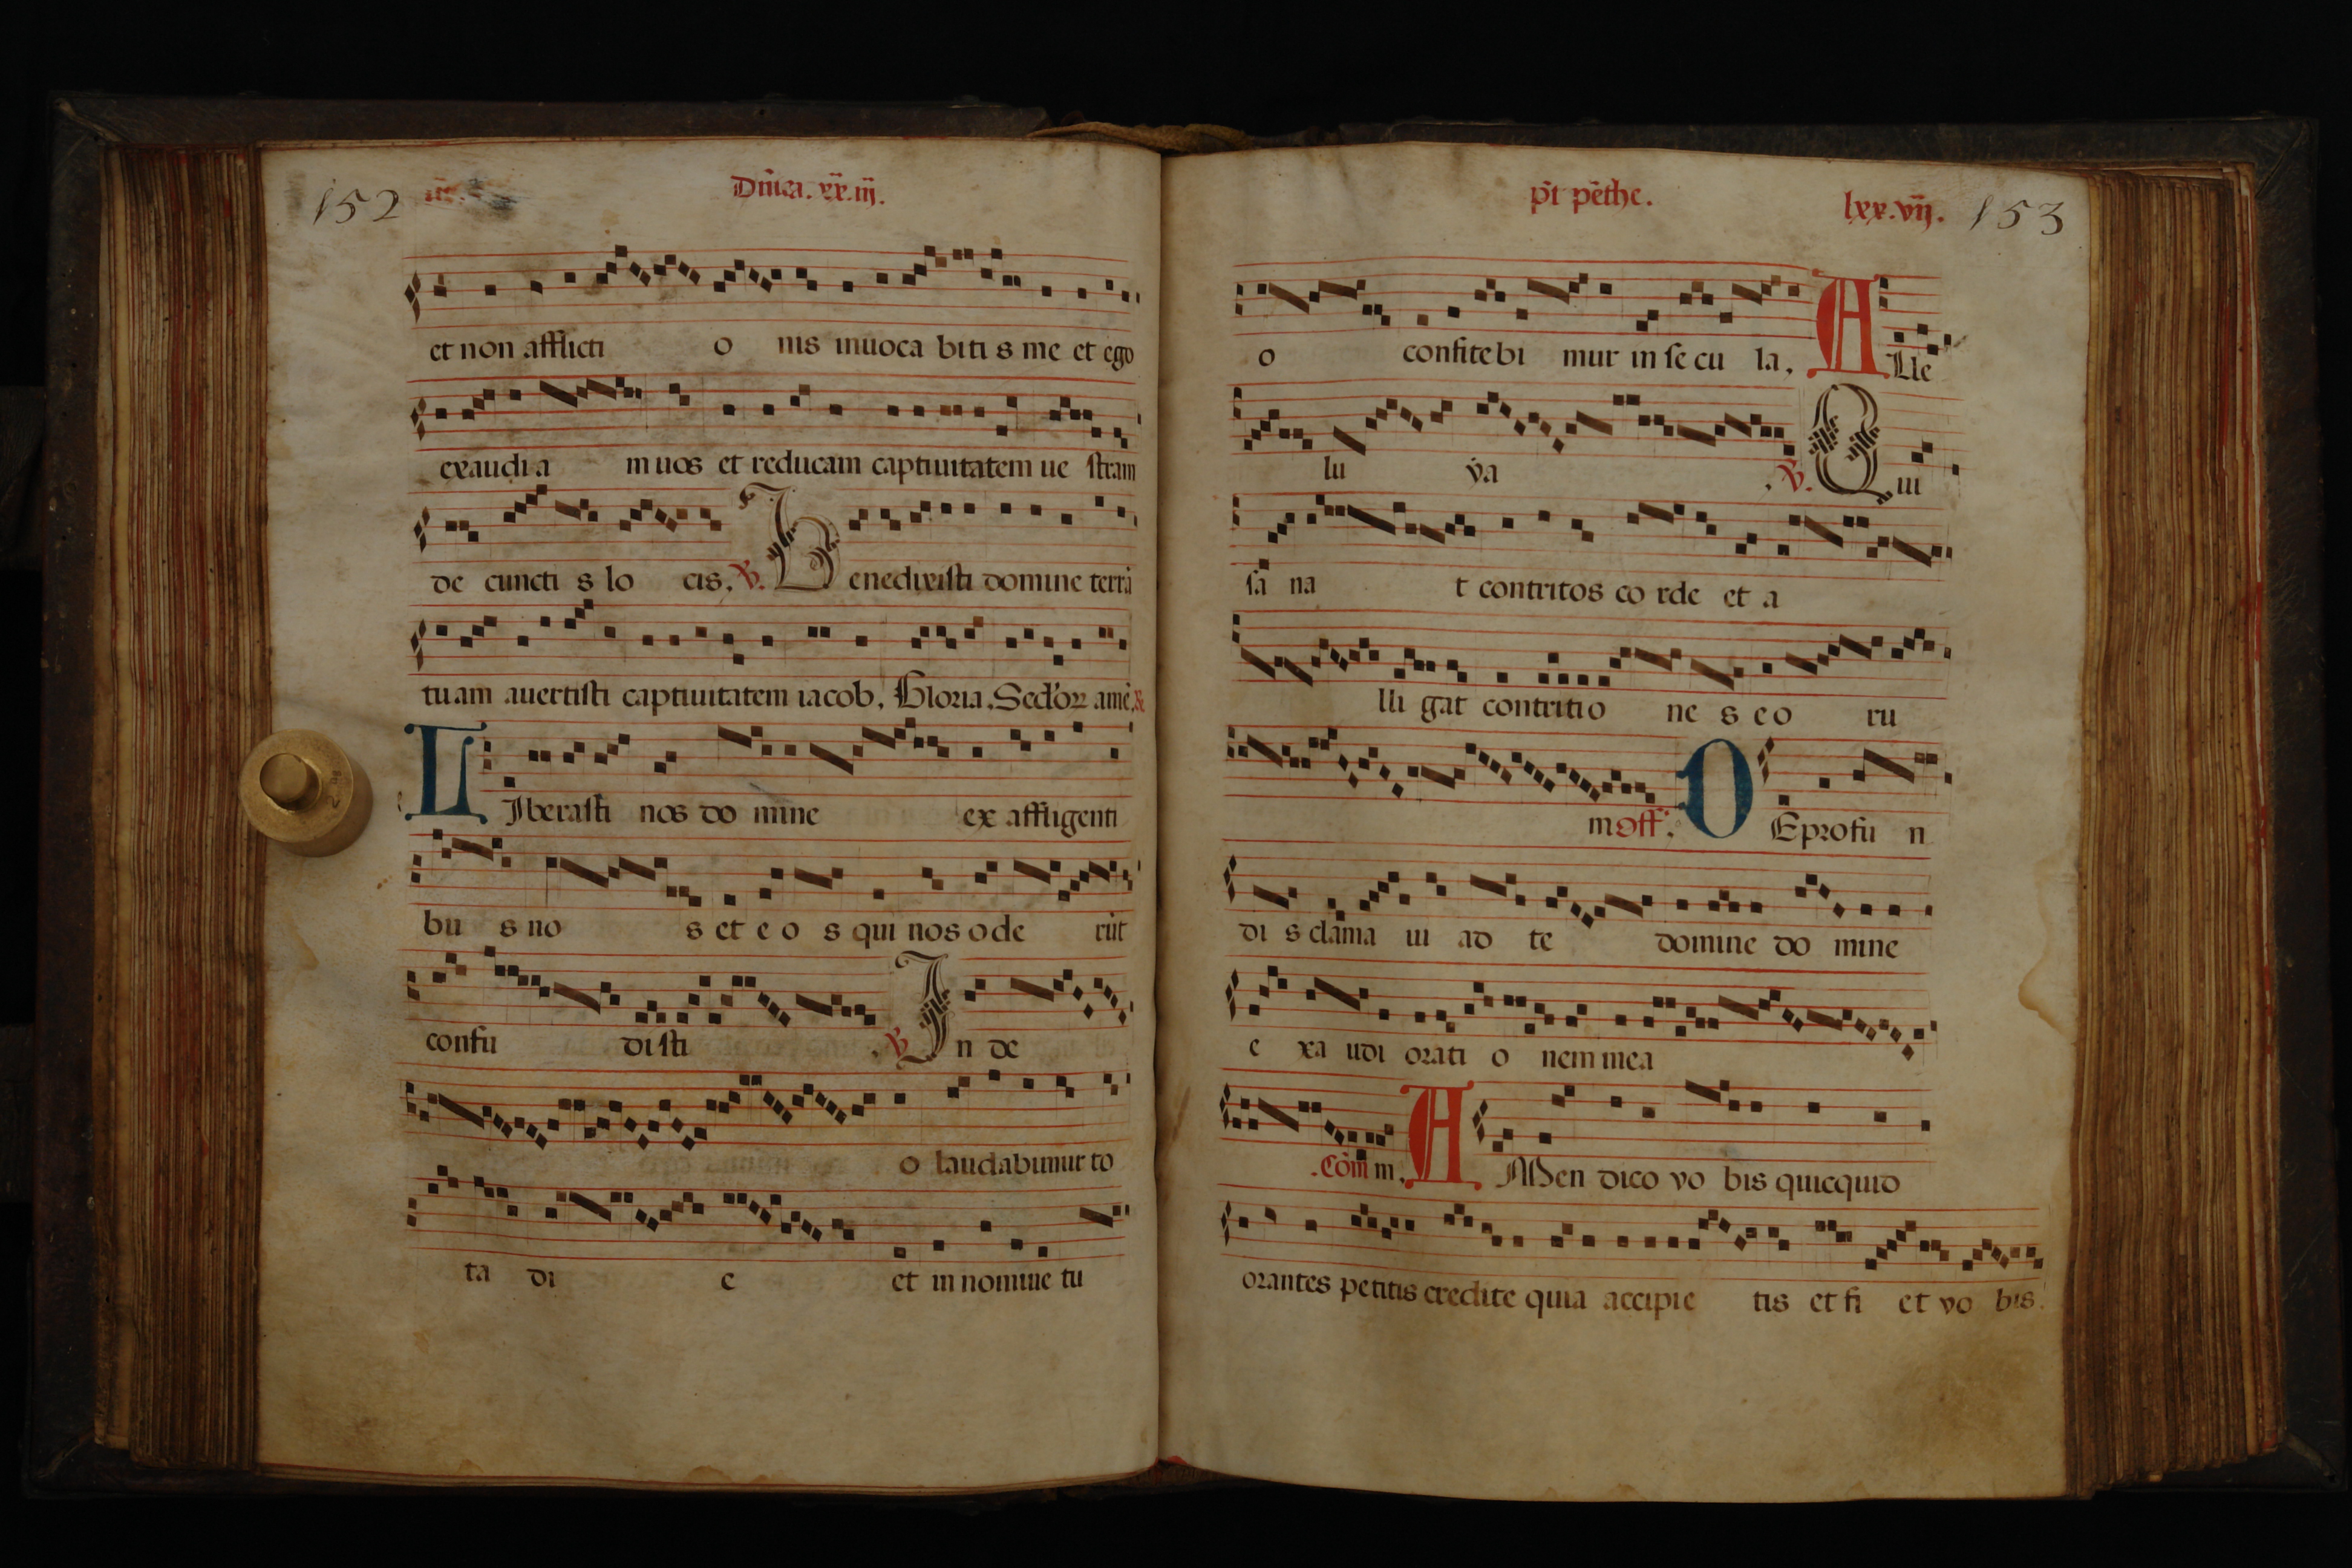 152
Dn̄ica. xx.iij.
et non afflicti o nis inuoca biti s me et ego
exaudi a m uos et reducam captiuitatem ue stram
de cuncti s lo cis. ℣. Benedixisti domine terrā
tuam auertisti captiuitatem iacob. Gloria. Sed'oꝝ amē.
LIberasti nos do mine ex affligenti
bu s no s et e o s qui nos ode rūt
confu disti . ℣. In de
o laudabimur to
ta di e et in nomine tu
pt̄ pēthe. lxx.vij. 153
o confitebi mur in secu la. Alle
lu ya . ℣. Qui
sa na t contritos co rde et a
lli gat contritio ne s eo ru
m off. DE profu n
di s clama ui ad te domine do mine
e xa udi orati o nem mea
.Cōm m. AMen dico vo bis quicquid
orantes petitis credite quia accipie tis et fi et vo bis.